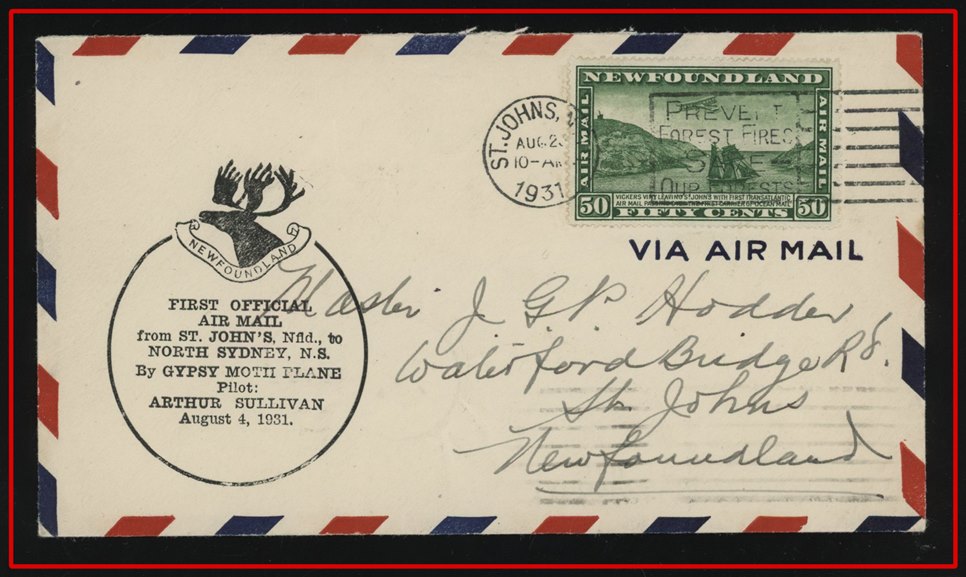 NEWFOUNDLAND
AIR MAIL
AIR MAIL
VICKERS VIMY LEAVING ST. JOHN'S WITH FIRST TRANSATLANTIC
50 FIFTY CENTS 50
ST. JOHNS,
AUG 2
10-AM
1931
PREVENT
FOREST FIRES
SAVE
OUR FORESTS
VIA AIR MAIL
NEWFOUNDLAND
FIRST OFFICIAL
AIR MAIL
from ST. JOHN'S, Nfld., to
NORTH SYDNEY, N.S.
By GYPSY MOTH PLANE
Pilot:
ARTHUR SULLIVAN
August 4, 1931.
Master J G P Hodder
Waterford Bridge Rd.
St. Johns
Newfoundland